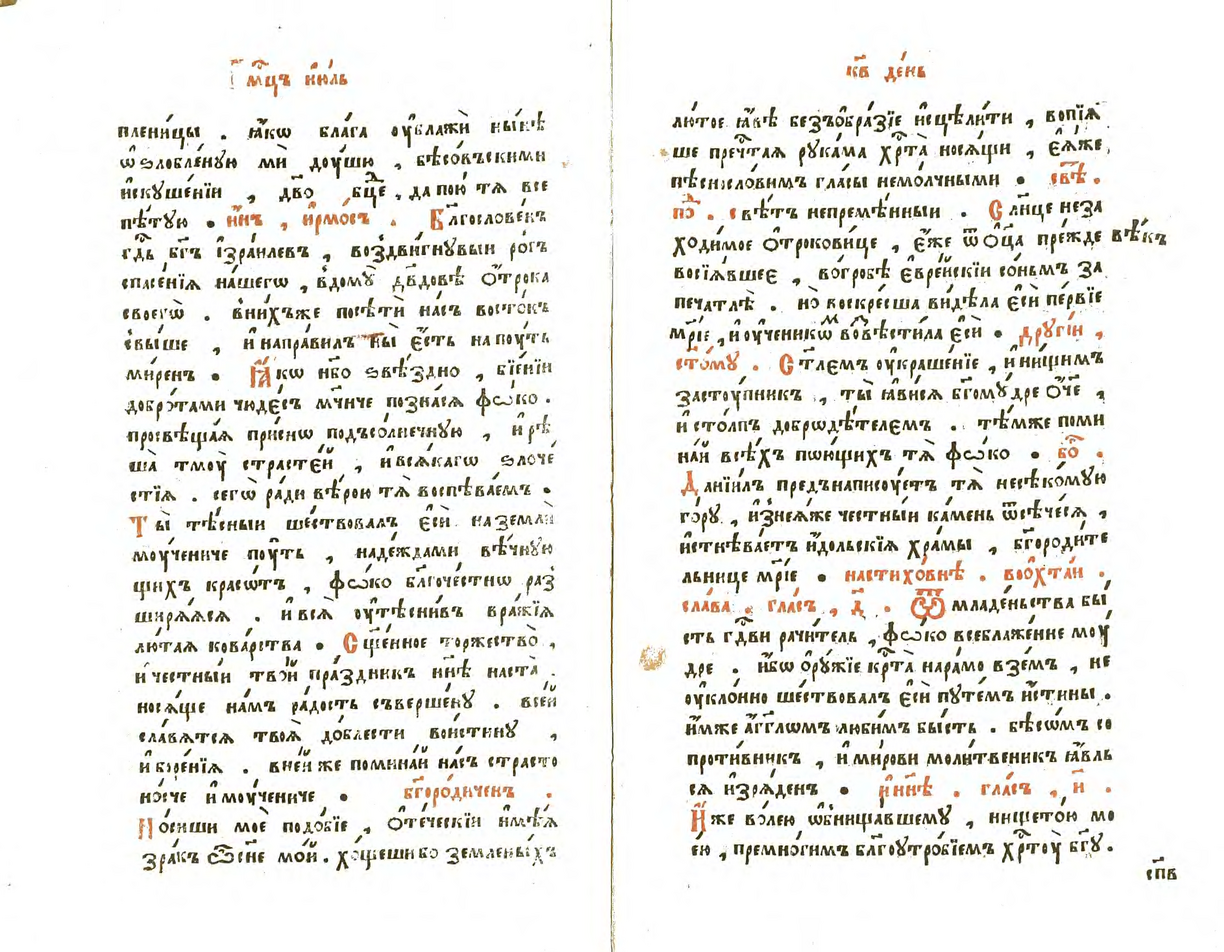 мц҃ъ і҆ю́ль
пленицы . ꙗ҆́кѡ бла́га ᲂу҆блажѝ ны́нѣ
ѡ҆ѕлобле́ную мѝ дꙋ́шю , бѣсо́въскими
и҆скуше́нїи , дв҃о бц҃е , да пою̀ тѧ̀ все
пѣ́тую . и҆́нъ , і҆рмо́съ . Бл҃гослове́нъ
гд҇ь бг҃ъ і҆зра́илевъ , воздви́гнувыи ро́гъ
спасе́нїѧ на́шегѡ , вдомꙋ̀ дв҃довѣ ѻ҆́трока
своегѡ̀ . вни́хъже посѣтѝ на́съ восто́къ
свы́ше , и҆ напра́вилъ ны̀ є҆́сть на пꙋ́ть
ми́ренъ . Ꙗ҆́кѡ нб҃о ѕвѣ́здно , бїе́нїи
добро́тами чюде́съ мч҃нче позна́сѧ фѡ́ко .
просвѣща́ѧ при́снѡ подъсо́лнечную , и҆ рѣ
ша̀ тмꙋ̀ страсте́й , и҆ всѧ́кагѡ ѕлоче
стїѧ . сегѡ̀ ра́ди вѣ́рою тѧ̀ воспѣва́емъ .
Ты̀ тѣ́сныи ше́ствовалъ є҆сѝ на землѝ
мꙋ́чениче пꙋ́ть , наде́ждами вѣ́чную
щихъ красѡ́тъ , фѡ́ко бл҃гоче́стнѡ раз
ширѧ́ѧсѧ . и҆ всѧ̀ ᲂу҆тѣсни́въ вра́жїѧ
лю́таѧ кова́рства . Сщ҃е́нное торжество̀ ,
и҆ че́стныи тво́й пра́здникъ нн҃ѣ наста̀ .
носѧ́ще на́мъ ра́дость съверше́ну . все́й
сла́вѧтсѧ твоѧ̀ до́блести вои́стину ,
и҆ боре́нїѧ . вне́й же помина́й на́съ страсто
но́сче и҆ мꙋ́чениче . бг҃оро́диченъ .
Но́сиши моѐ подо́бїе , ѻ҆те́ческїи и҆мѣ́ѧ
зра́къ сѿ́сне мо́й . хо́щеши бо земле́ныхъ
к҃в де́нь
лю́тое ꙗ҆́вѣ безъѻбра́зїе и҆сцѣли́ти , вопїѧ́
ше пречт҇аѧ рука́ма хрт҇а̀ носѧ́щи , є҆ѧ́же
пѣснссло́вимъ гла́сы немо́лчными . свѣ́ .
по҇ . свѣ́тъ непремѣ́нныи . Сл҃нце неза
ходи́мое ѻ҆трокови́це , є҆́же ѿ ѻ҆ц҃а пре́жде вѣ́къ
восїѧ́вшеє , вогро́бѣ є҆вре́йскїи со́ньмъ за
печатлѣ̀ . но̀ воскре́сша ви́дѣла є҆сѝ пе́рвїе
мр҃їе , и҆ ᲂу҆ченикѡ́м вовѣсти́ла є҆сѝ . дрꙋгі́и ,
ст҃о́му . Ст҃лемъ ᲂу҆краше́нїе , и҆ ни́щимъ
застꙋ́пникъ , ты̀ ꙗ҆ви́сѧ бг҃омꙋ́дре ѻ҆́ч҃е ,
и҆ сто́лпъ добрѡдѣ́телемъ . тѣ́мже поми
на́й всѣ́хъ пѡ́ющихъ тѧ̀ фѡ́ко . бо҇ .
Данїи́лъ предънаписꙋ́етъ тѧ̀ несѣко́мую
го́ру , и҆знеѧ́же че́стныи ка́мень ѿсѣ́чесѧ ,
и҆стнѣва́етъ и҆́дольскїѧ хра́мы , бг҃ороди́те
льнице мр҃їе . настихо́внѣ . воѻ҆хта́и .
сла́ва . гла́съ , д҃ . Ѿ младе́ньства бы́
сть гд҇ви рачи́тель , фѡ́ко всеблаже́нне мꙋ́
дре . и҆́бѡ ѻ҆рꙋ́жїе крт҇а̀ нара́мо взе́мъ , не
ᲂу҆кло́нно ше́ствовалъ є҆сѝ путе́мъ и҆́стины .
и҆́мже а҆́гг҃лѡмъ любимъ бы́сть . бѣсѡ́мъ со
проти́вникъ , и҆ ми́рови моли́твеникъ ꙗ҆вль
сѧ̀ и҆зрѧ́денъ . и҆ нн҃ѣ . гла́съ , и҃ .
И҆́же во́лею ѡ҆бнища́вшему , нището́ю мо
е́ю , премно́гимъ бл҃гоутро́бїемъ хрт҇ꙋ̀ бг҃у .
сп҃в